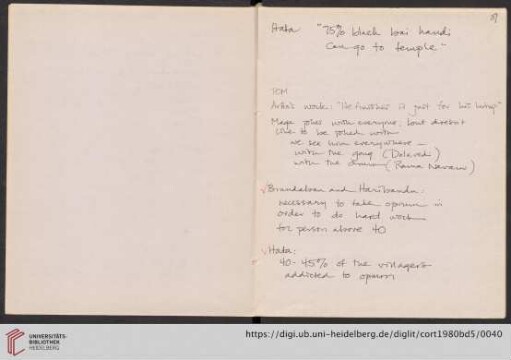 Hata "75% black
can go to temple"
TCM
work: "He finishes it just for his
Maga jokes with everyone; but doesn't
like to be joked with
we see him everywhere –
with the gang
with the
Brundaban and Haribandu:
necessary to take opium in
order to do hard work
for person above 40
Hata:
40-45% of the villagers
addicted to opium
UNIVERSITÄTS-
BIBLIOTHEK
HEIDELBERG
https://digi.ub.uni-heidelberg.de/diglit/cort1980bd5/0040